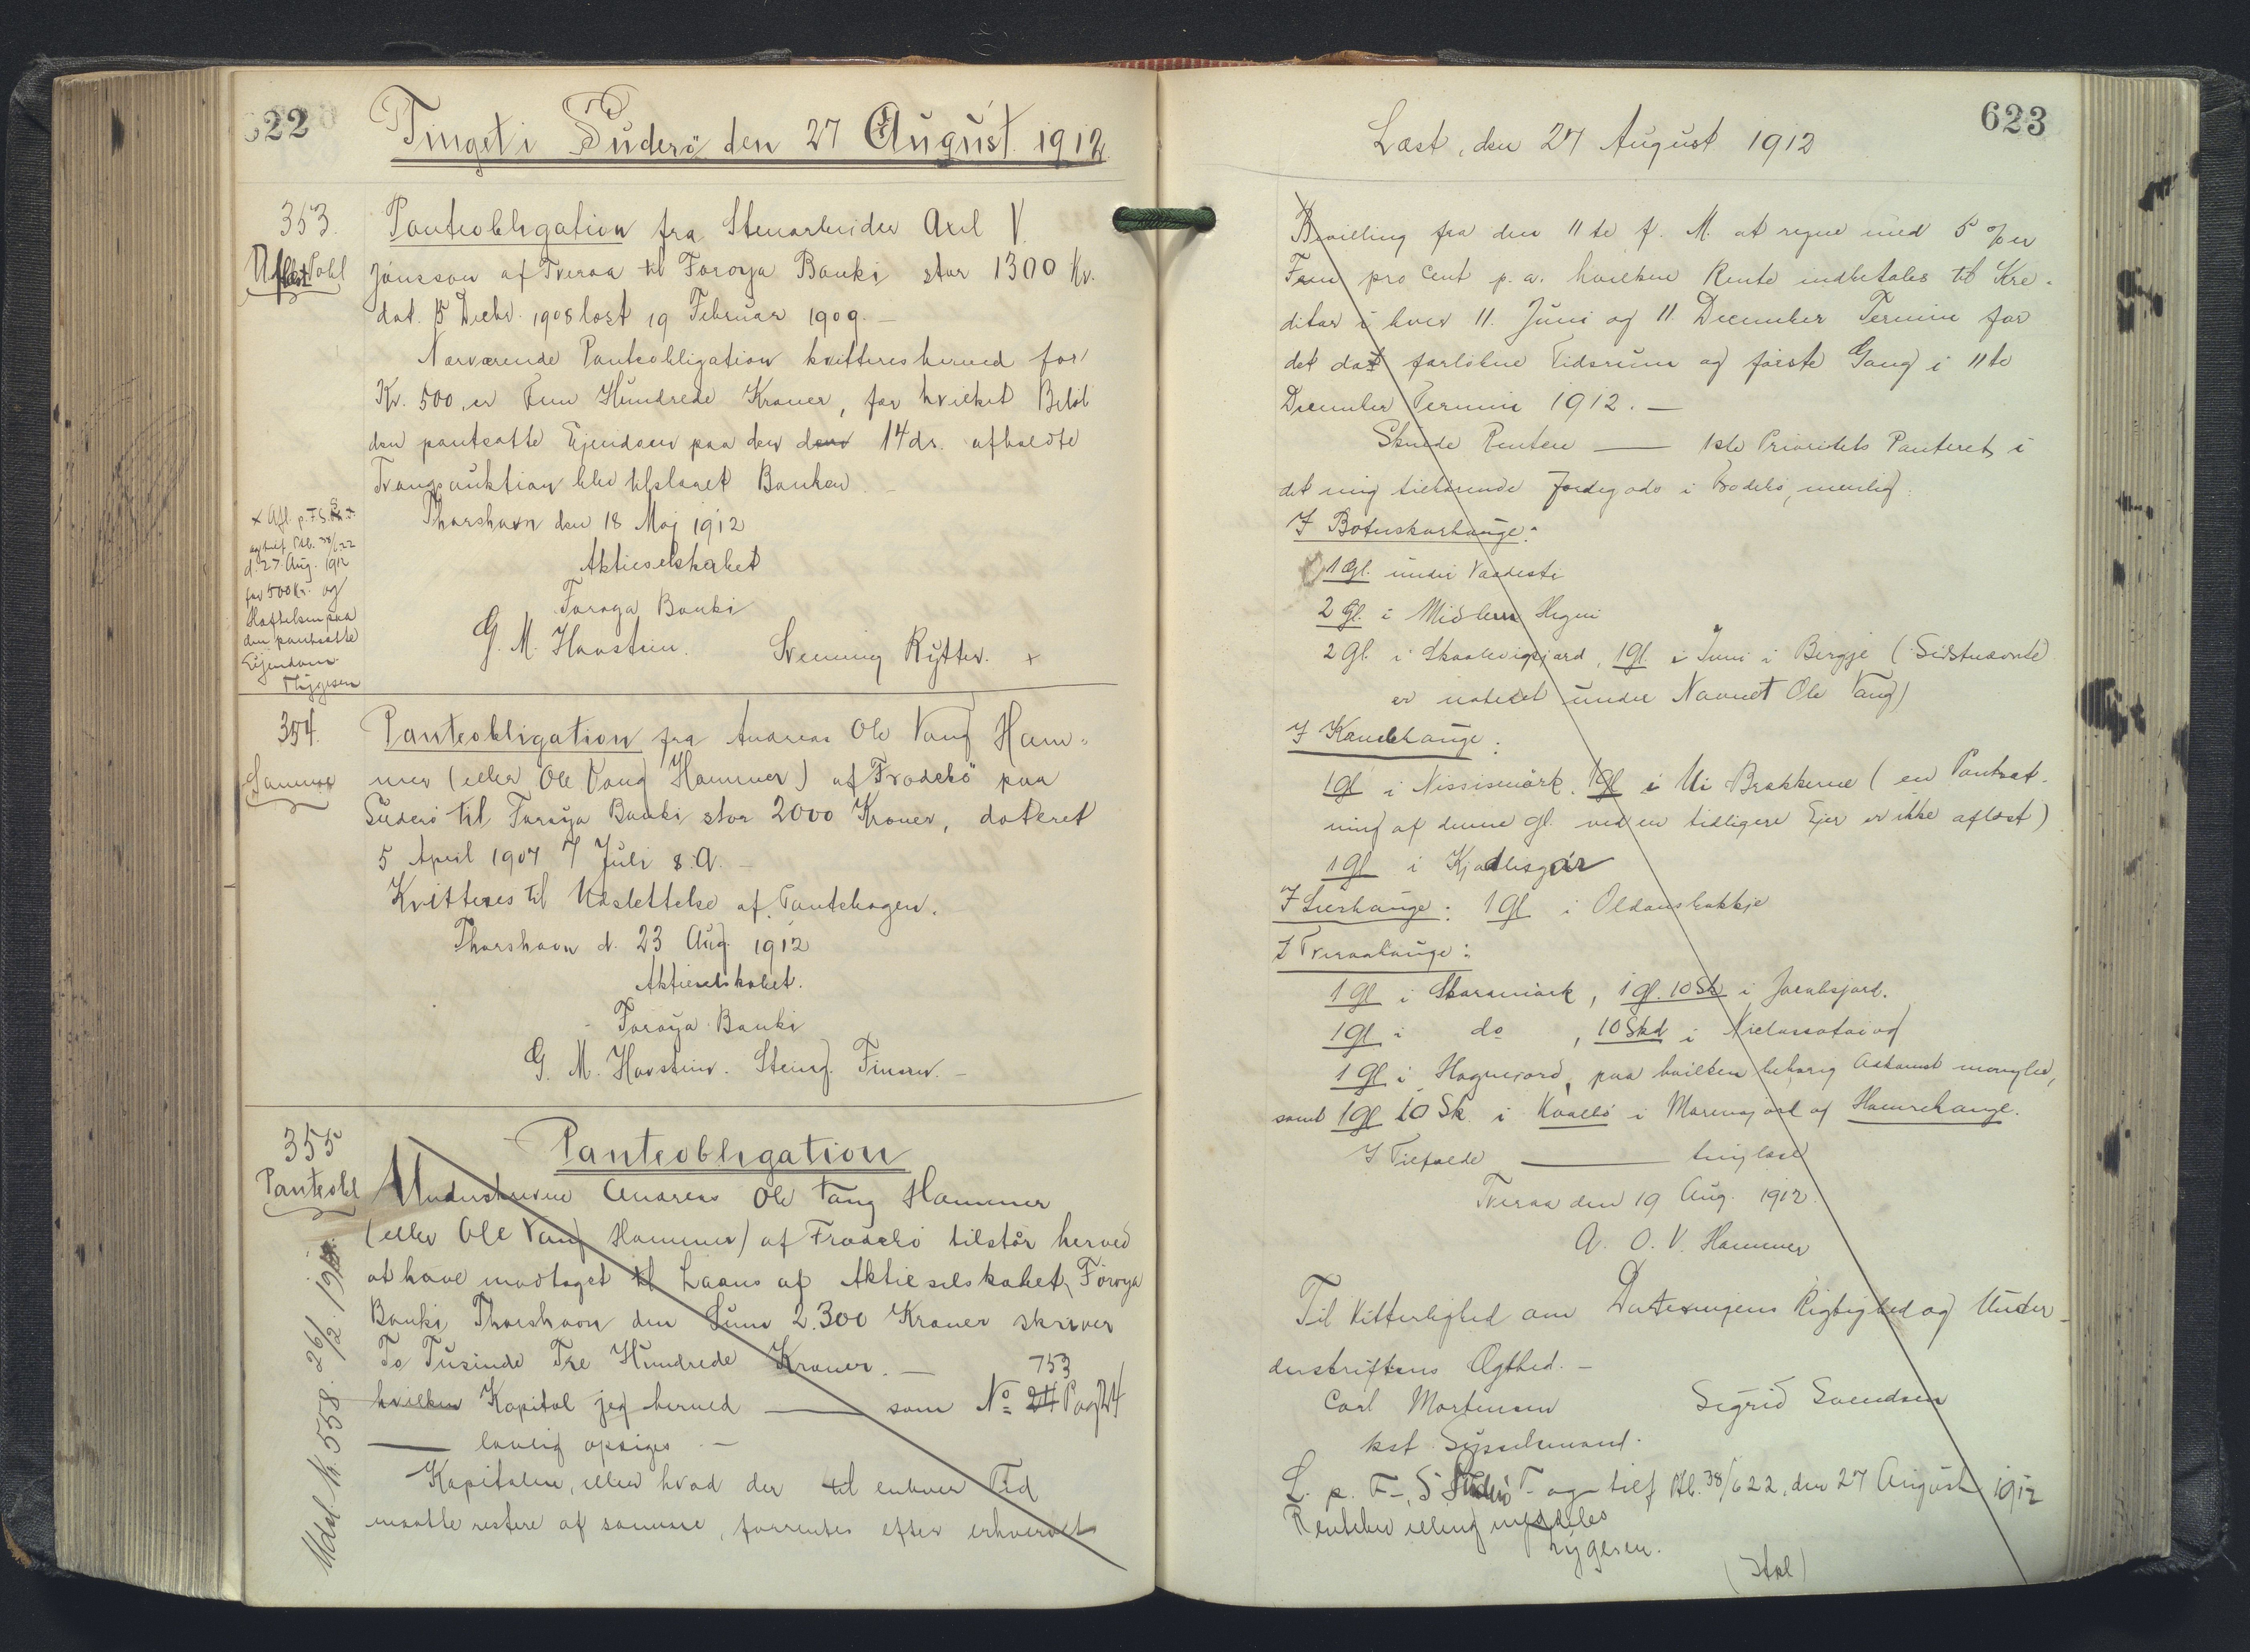 622
Tinget i Suderö den 27 August 1912
353.
Aflæst Pobl
Panteobligation fra Stenarbeider Axel V.
Jónsson af Tveraa til Foroya Banki stor 1300 Kr.
dat. 15 Decbr. 1908 læst 19 Februar 1909. —
Nærværende Panteobligation kvitteres herved for
Kr. 500, er Fem Hundrede Kroner, for hvilket Beløb
den pantsatte Ejendom paa den den 14 ds. afholdte
Tvangsauktion blev tilslaaet Banken —
Thorshavn den 18 Maj 1912
Aktieselskabet
Foroya Banki
G. M. Havsteen. Svenning Rytter. x
x Afl. p. F. S.
og tilf Ptb. 38/622
d. 27 Aug. 1912
for 500 Kr. og
Hæftelsen paa
den pantsatte
Ejendom.
Thygesen
354.
Samme
Panteobligation fra Andreas Ole Vang Ham-
mer (eller Ole Vang Hammer) af Frodebö paa
Suderö til Foroya Banki stor 2000 Kroner, dateret
5 April 1907 7 Juli s. A. —
Kvitteres til Udslettelse af Pantebogen.
Thorshavn d. 23 Aug. 1912
Aktieselskabet.
Foroya Banki
G. M. Havsteen. Steingr. Finsen. —
355
Panteobl
Panteobligation
Underskrevne Andreas Ole Vang Hammer
(eller Ole Vang Hammer) af Frodebö tilstår herved
at have modtaget til Laans af Aktieselskabet, Föroya
Banki Thorshavn den Sum 2.300 Kroner skriver
To Tusinde Tre Hundrede Kroner. —
753
hvilken Kapital jeg herved — som No 24 Pag 24
— lovlig opsiges. —
Kapitalen, eller hvad der til enhver Tid
maatte restere af samme, forrentes efter erhvervet
Udsl. Nr. 558. 26/2. 19
623
Læst, den 27 August 1912
Bevilling fra den 11te f. M. at regne med 5 % er
Fem pro Cent p. a. hvilken Rente indbetales til Kre-
ditor i hver 11. Juni og 11. December Termin for
det da forløbne Tidsrum og første Gang i 11te
December Termin 1912. —
Skade Renten — 1ste Prioritets Panteret i
det mig tilhørende Jordegods i Frodebö, nemlig:
I Botnskarhauge:
1 Gl. under Vaadesti
2 Gl. i Midlum Hegni
2 Gl. i Skaalevigsjard, 1 Gl. i Inni i Bergje (Sidstnævnte
er noteret under Navnet Ole Vang)
I Kambhauge:
1 Gl i Nissismörk, 1 Gl i Ui Brekkerne (en Pantsæt-
ning af denne Gl. ved en tidligere Ejer er ikke aflæst)
1 Gl i Kjadlisgår
I Lieshauge: 1 Gl i Oldanskakkje
I Tveraahauge:
1 Gl i Skaramörk, 1 Gl. 10 Sk i Jacobsjord.
1 Gl i do, 10 Skd i
1 Gl i Hagnejord, paa hvilken behørig Adkomst mangler,
samt 1 Gl 10 Sk i Hvalbö i Marenajord af Hamrehauge.
I Tilfælde — tinglæst
Tveraa den 19 Aug. 1912.
A. O. V. Hammer
Til Vitterlighed om Dateringens Rigtighed og Under-
derskriftens Ægthed. —
Carl Mortensen Sigrid Svendsen
kst. Sysselmand.
L. p. F-, S Suderö T- og tilf Ptb. 38/622, den 27 August 1912
Rentebevilling meddeles
Thygesen.
(Stpl)